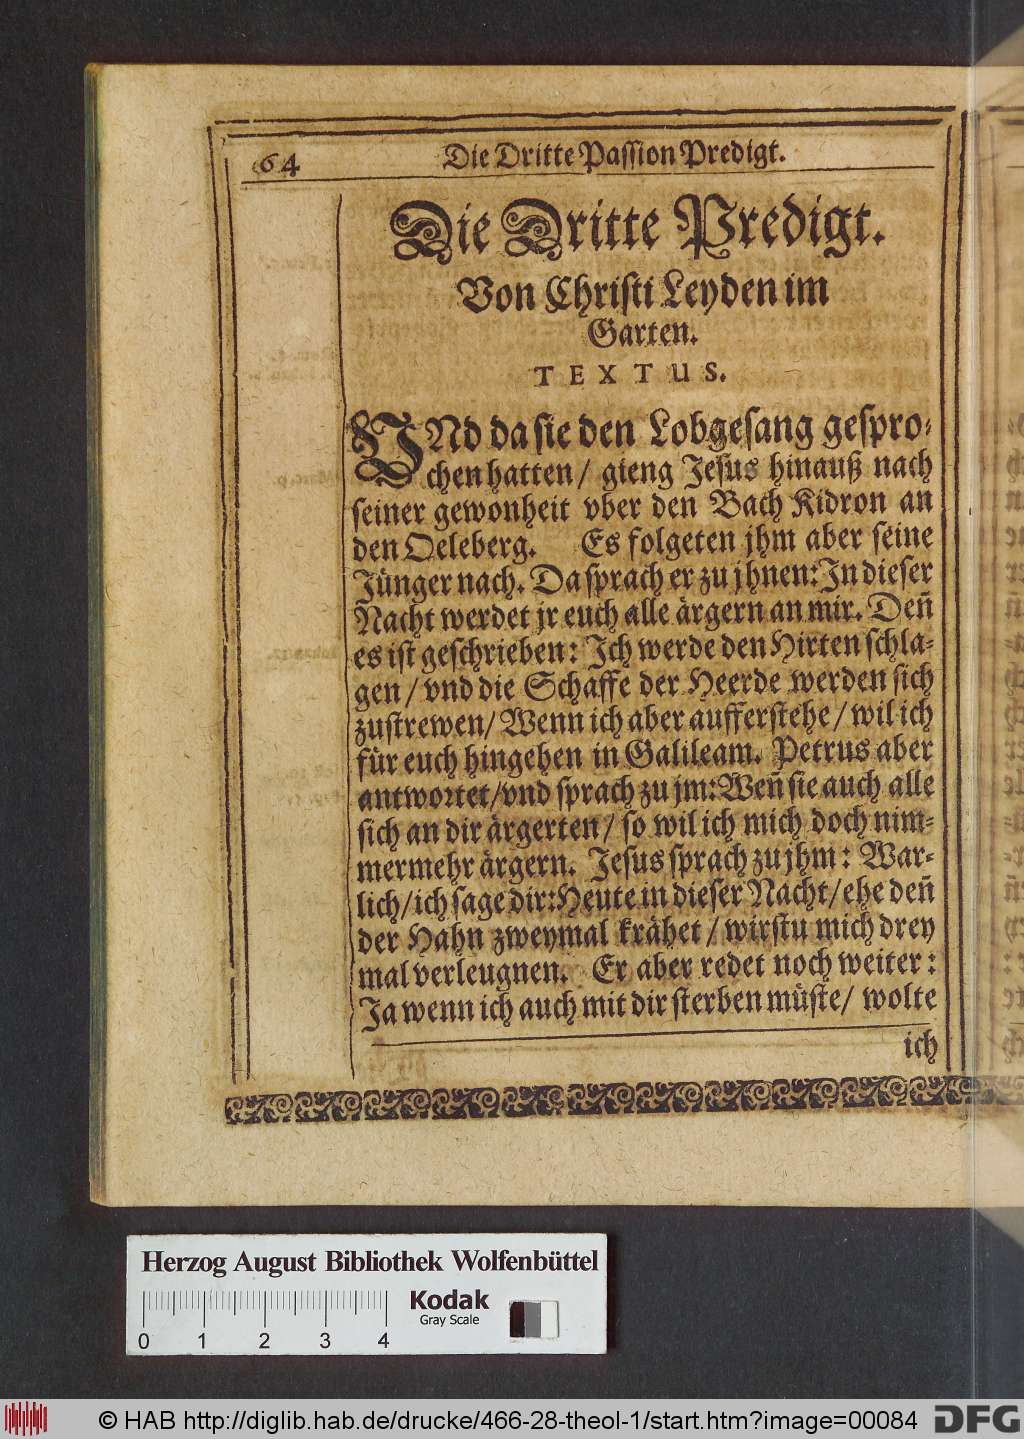 64
Die Dritte Passion Predigt.
Die Dritte Predigt.
Von Christi Leyden im
Garten.
TEXTUS.
VNd da sie den Lobgesang gespro-
chen hatten / gieng Jesus hinauß nach
seiner gewonheit vber den Bach Kidron an
den Oeleberg. Es folgeten jhm aber seine
Jünger nach. Da sprach er zu jhnen: In dieser
Nacht werdet jr euch alle ärgern an mir. Deñ
es ist geschrieben: Ich werde den Hirten schla-
gen / vnd die Schaffe der Heerde werden sich
zustrewen / Wenn ich aber aufferstehe / wil ich
für euch hingehen in Galileam. Petrus aber
antwortet / vnd sprach zu jm: Weñ sie auch alle
sich an dir ärgerten / so wil ich mich doch nim-
mermehr ärgern. Jesus sprach zu jhm: War-
lich / ich sage dir: Heute in dieser Nacht / ehe deñ
der Hahn zweymal krähet / wirstu mich drey
mal verleugnen. Er aber redet noch weiter:
Ja wenn ich auch mit dir sterben müste / wolte
ich
Herzog August Bibliothek Wolfenbüttel
Kodak
Gray Scale
0 1 2 3 4
© HAB http://diglib.hab.de/drucke/466-28-theol-1/start.htm?image=00084
DFG